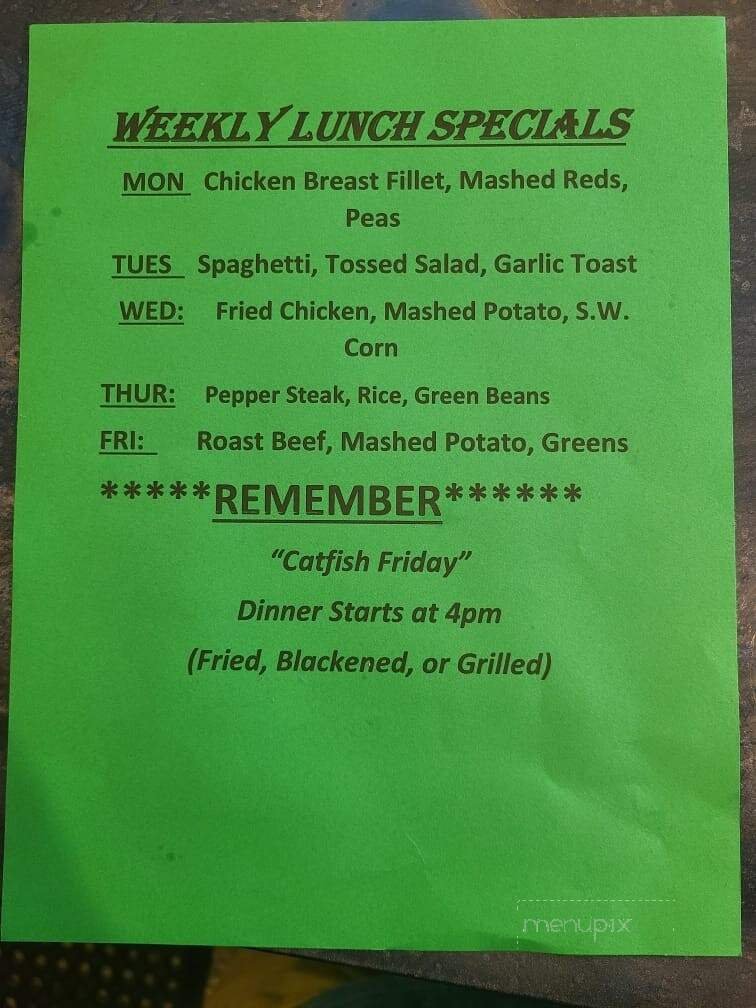 WEEKLY LUNCH SPECIALS
MON Chicken Breast Fillet, Mashed Reds,
Peas
TUES Spaghetti, Tossed Salad, Garlic Toast
WED: Fried Chicken, Mashed Potato, S.W.
Corn
THUR: Pepper Steak, Rice, Green Beans
FRI: Roast Beef, Mashed Potato, Greens
*****REMEMBER******
“Catfish Friday”
Dinner Starts at 4pm
(Fried, Blackened, or Grilled)
menupix